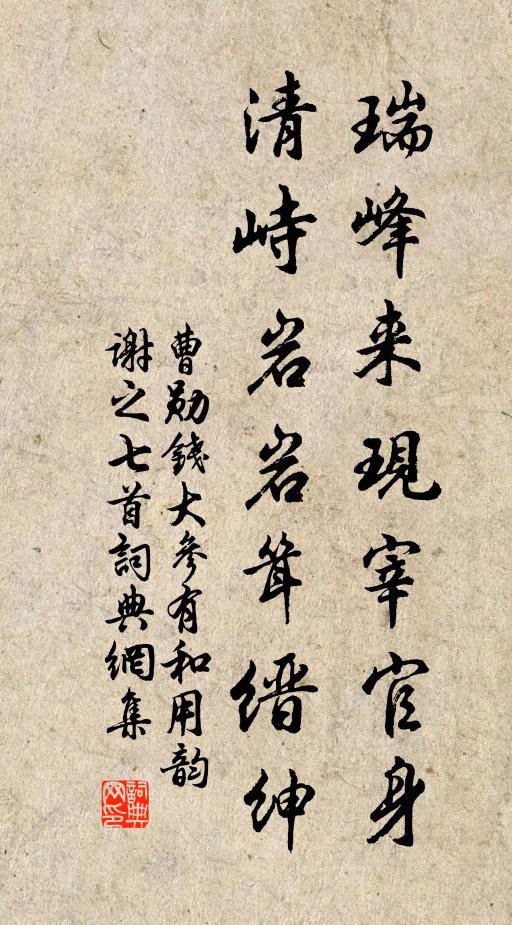 瑞峰来現宰官身
清峙岩岩耸缙绅
曹勋錢大參有和用韵
谢之七首詞典網集
詞典网印